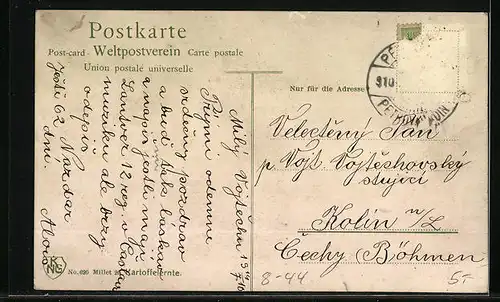 Postkarte
Post-card - Weltpostverein Carte postale
Union postale universelle
Nur für die Adresse
Milý Vojtěchu 19
Přijmi odemne
srdečný pozdrav
a buď tak laskav
a napiš jestli mají
12 reg. v Čáslavi
muziku ale brzy
odepiš
Ještě 62 Nazdar
dní.
Alois
Velectěný Pan
p. Vojt. Vojtěchovský
stující
Kolín n/L
Čechy (Böhmen)
No. 696 Millet Kartoffelernte.
8-44
5-